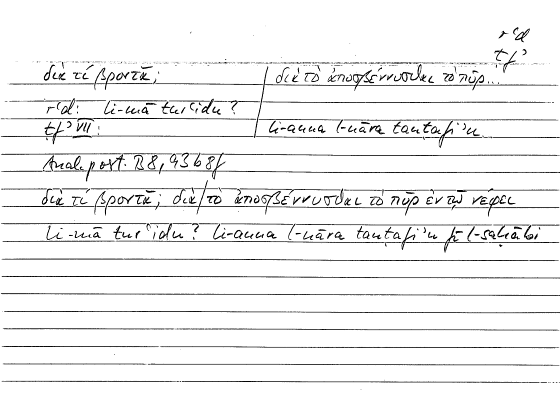 rʿd
ṭfʾ
διὰ τί βροντᾷ; διὰ τὸ ἀποσβέννυσθαι τὸ πῦρ...
rʿd: li-mā turʿidu?
ṭfʾ VII: li-anna l-nāra tanṭafiʾu
Anal. post. B8, 93b8f
διὰ τί βροντᾷ; διὰ/τὸ ἀποσβέννυσθαι τὸ πῦρ ἐν τῷ νέφει
li-mā turʿidu? li-anna l-nāra tanṭafiʾu fī l-saḥābi